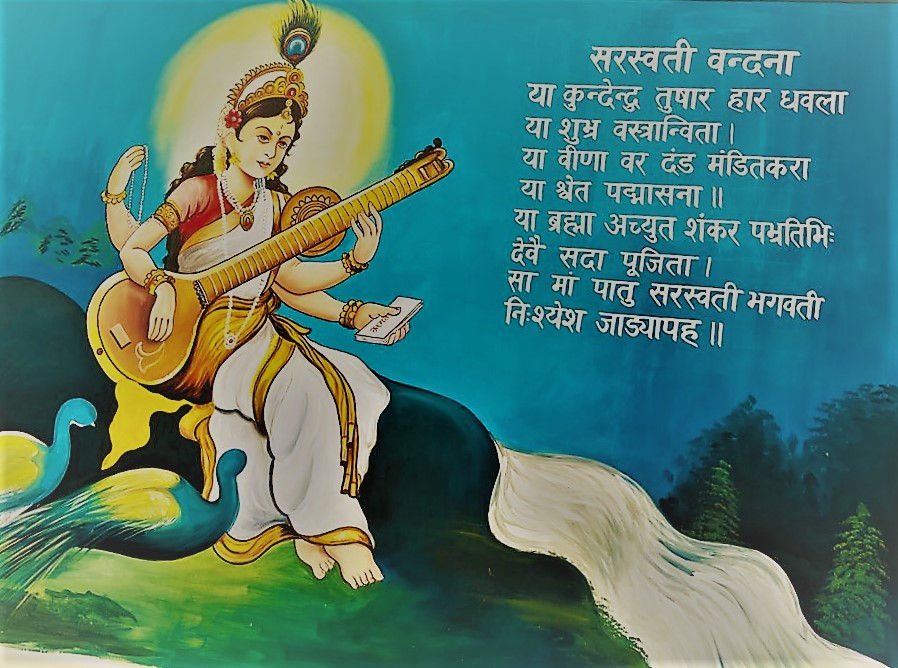 सरस्वती वन्दना
या कुन्देन्द्व तुषार हार धवला
या शुभ्र वस्त्रान्विता।
या वीणा वर दंड मंडितकरा
या श्वेत पद्मासना॥
या ब्रह्मा अच्युत शंकर पभ्रतिभिः
देवै सदा पूजिता।
सा मां पातु सरस्वती भगवती
निःश्येश जाड्यापह॥